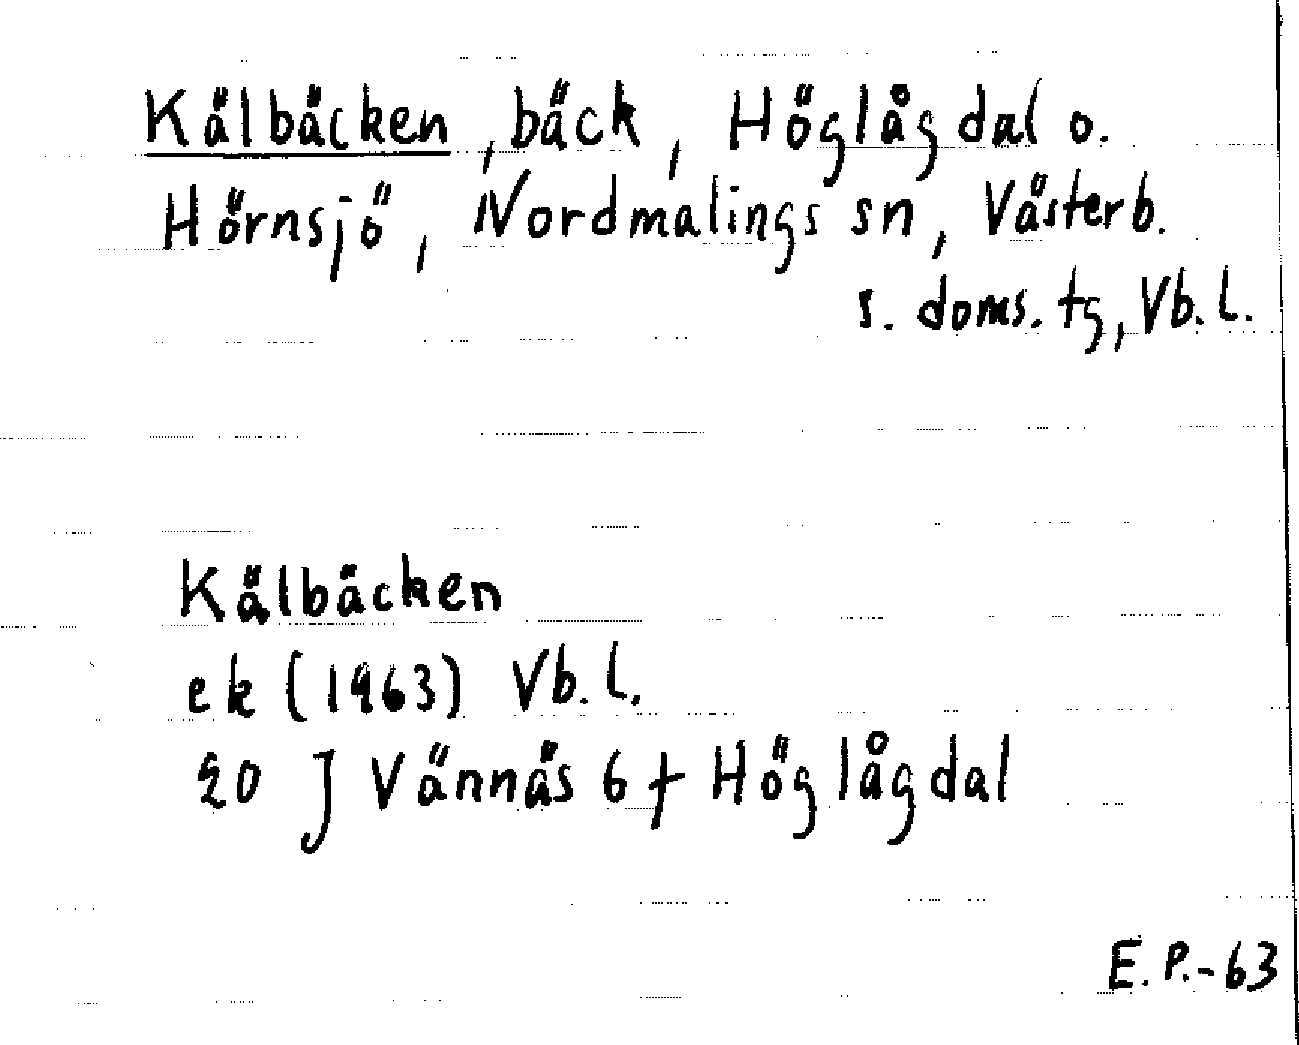 Kälbäcken, bäck, Höglågdal o.
Hörnsjö, Nordmalings sn, Västerb.
s. doms. tg, Vb. l.
Kälbäcken
ek (1963) Vb. l.
20 J Vännäs 6 f Höglågdal
E. P.-63